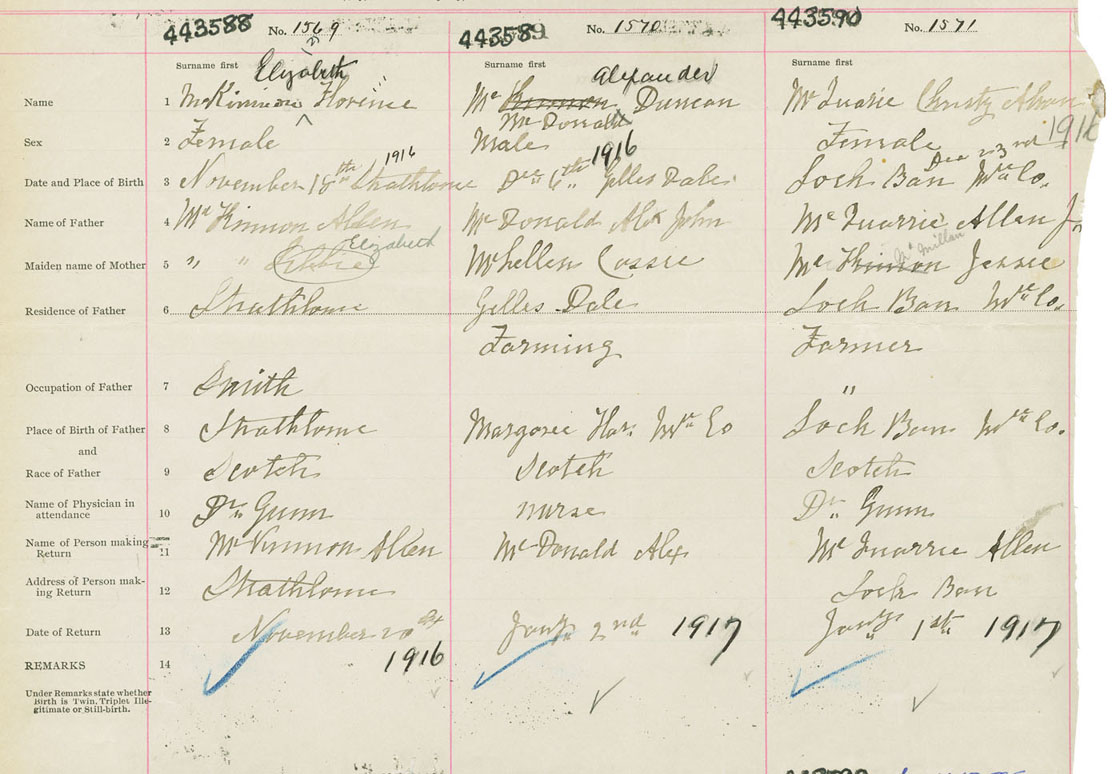 443588 No. 1569 443589 No. 1570 443590 No. 1571
Surname first Surname first Surname first
Elizabeth Alexander
Name 1 McKinnon Florence Mc Kinnon Duncan Mc Quarie Christy
Mc Donald
Sex 2 Female Male Female 1916
1916 1916 Dec 23rd
Date and Place of Birth 3 November 18th Strathlorne Dec 6th Gilles Dale Loch Ban Inv. Co.
Name of Father 4 Mc Kinnon Allen Mc Donald Alex John Mc Quarrie Allan Jr
Elizabeth Mc Millan
Maiden name of Mother 5 " " Libbie McLellen Cassie Mc Kinnon Jessie
Residence of Father 6 Strathlorne Gilles Dale Loch Ban Inv. Co.
Farming Farmer
Occupation of Father 7 Smith "
Place of Birth of Father 8 Strathlorne Margaree Har. Inv. Co Loch Ban Inv. Co.
and
Race of Father 9 Scotch Scotch Scotch
Name of Physician in
attendance 10 Dr. Gunn nurse Dr. Gunn
Name of Person making
Return 11 McKinnon Allen Mc Donald Alex Mc Quarrie Allen
Address of Person mak-
ing Return 12 Strathlorne Loch Ban
Date of Return 13 November 20th Jany. 2nd 1917 Jany. 1st 1917
REMARKS 14 1916
Under Remarks state whether
Birth is Twin, Triplet Ille-
gitimate or Still-birth.